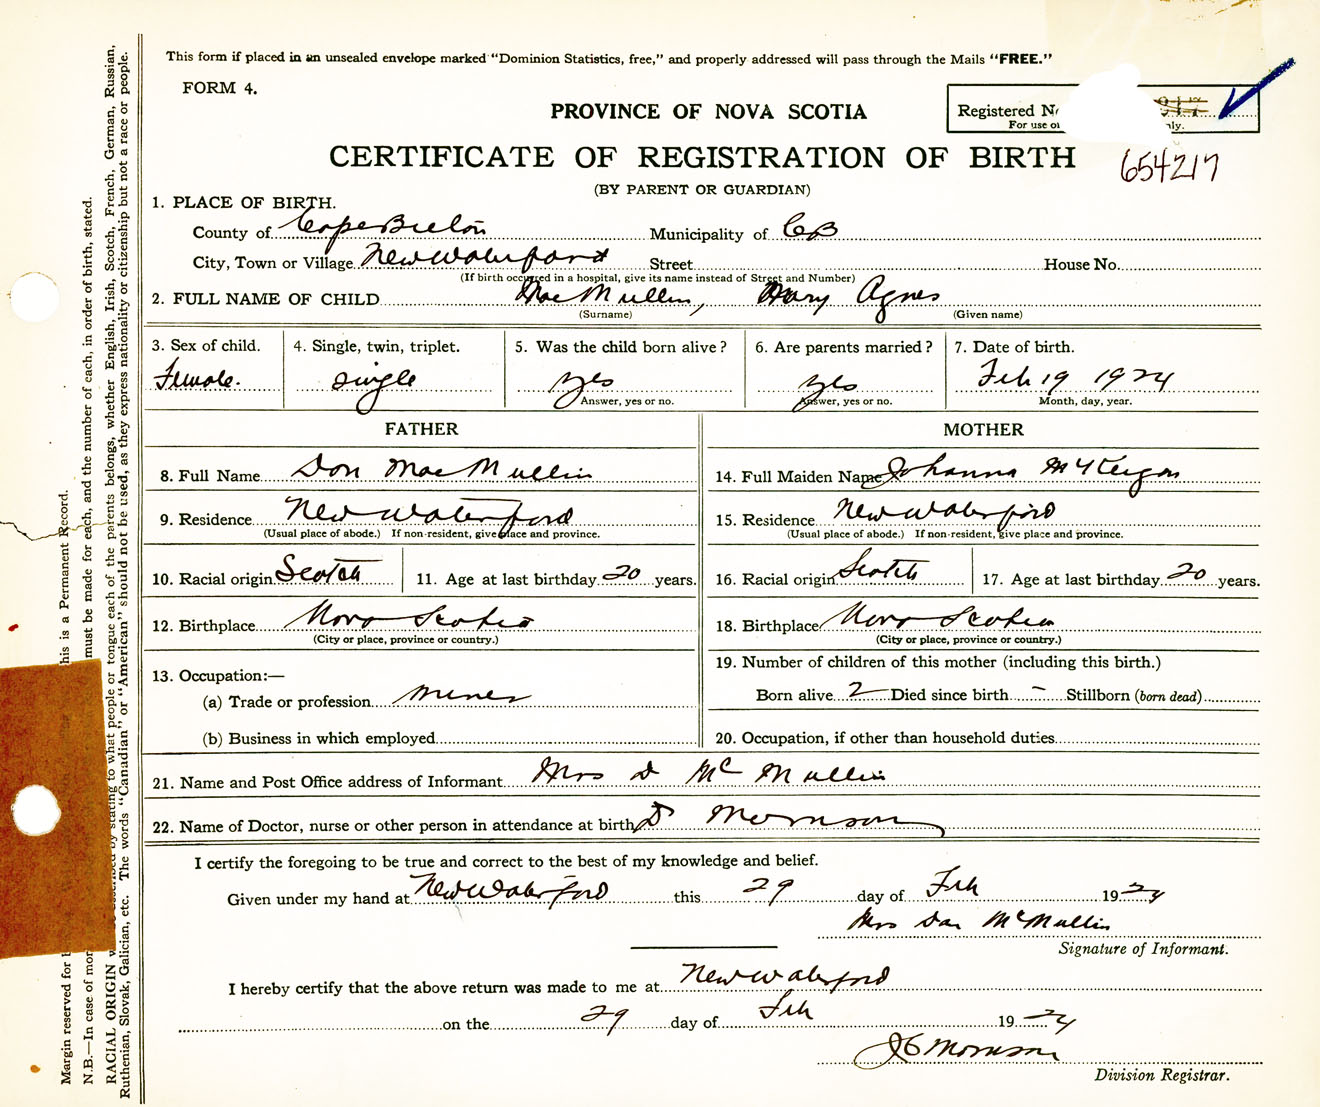 This form if placed in an unsealed envelope marked "Dominion Statistics, free," and properly addressed will pass through the Mails "FREE."
FORM 4.
PROVINCE OF NOVA SCOTIA
Registered No
For use of only.
CERTIFICATE OF REGISTRATION OF BIRTH
654217
(BY PARENT OR GUARDIAN)
1. PLACE OF BIRTH.
County of Cape Breton Municipality of CB
City, Town or Village New Waterford Street House No.
(If birth occurred in a hospital, give its name instead of Street and Number)
2. FULL NAME OF CHILD MacMullin, Mary Agnes
(Surname) (Given name)
3. Sex of child. 4. Single, twin, triplet. 5. Was the child born alive? 6. Are parents married? 7. Date of birth.
Female. single yes yes Feb 19 1924
Answer, yes or no. Answer, yes or no. Month, day, year.
FATHER MOTHER
8. Full Name Don MacMullin 14. Full Maiden Name Johanna
9. Residence New Waterford 15. Residence New Waterford
(Usual place of abode.) If non-resident, give place and province. (Usual place of abode.) If non-resident, give place and province.
10. Racial origin Scotch 11. Age at last birthday 20 years. 16. Racial origin Scotch 17. Age at last birthday 20 years.
12. Birthplace Nova Scotia 18. Birthplace Nova Scotia
(City or place, province or country.) (City or place, province or country.)
13. Occupation:— 19. Number of children of this mother (including this birth.)
(a) Trade or profession miner Born alive 2 Died since birth – Stillborn (born dead)
(b) Business in which employed 20. Occupation, if other than household duties
21. Name and Post Office address of Informant Mrs D McMullin
22. Name of Doctor, nurse or other person in attendance at birth Dr Morrison
I certify the foregoing to be true and correct to the best of my knowledge and belief.
Given under my hand at New Waterford this 29 day of Feb 1924
Mrs Dan McMullin
Signature of Informant.
I hereby certify that the above return was made to me at New Waterford
on the 29 day of Feb 1924
Morrison
Division Registrar.
Margin reserved for This is a Permanent Record.
N.B.—In case of mor must be made for each, and the number of each, in order of birth, stated.
RACIAL ORIGIN described by stating to what people or tongue each of the parents belongs, whether English, Irish, Scotch, French, German, Russian,
Ruthenian, Slovak, Galician, etc. The words "Canadian" or "American" should not be used, as they express nationality or citizenship but not a race or people.